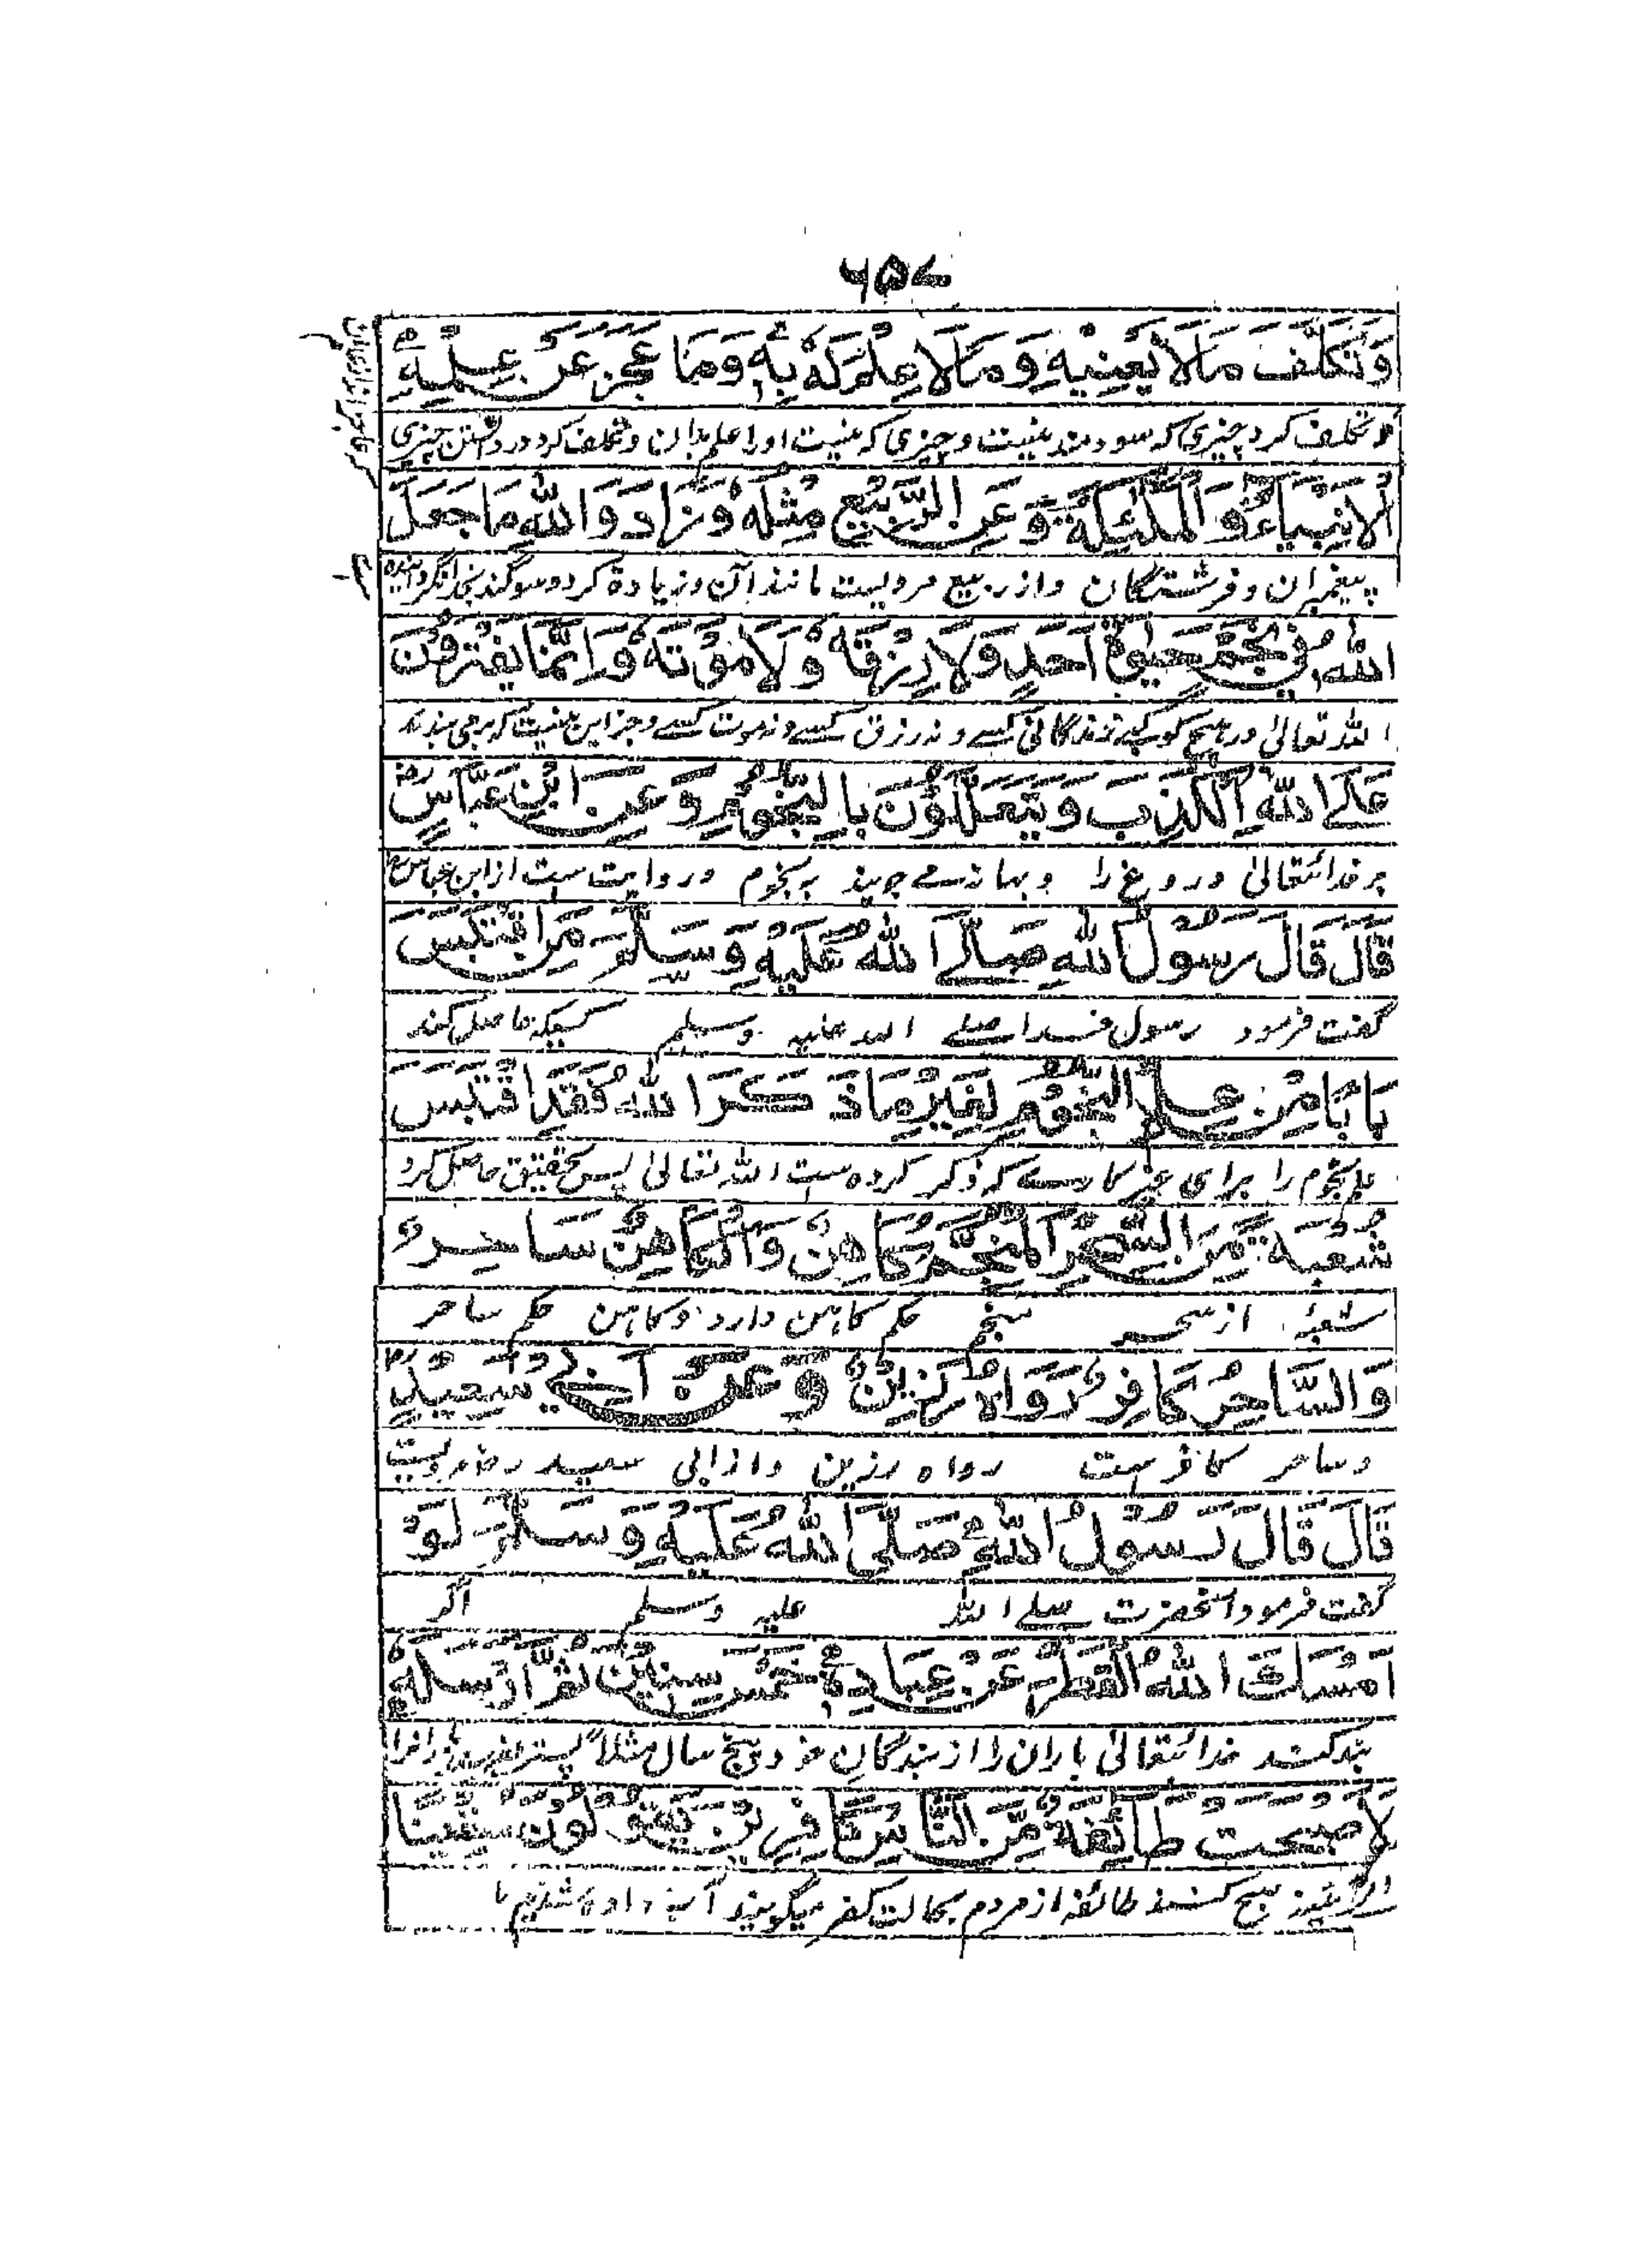 ۶۵۷
وَتَكَلَّفَ مَا لَا يَعْنِيْهِ وَمَا لَا عِلْمَ لَهٗ بِهٖ وَمَا عَجَزَ عَنْ عِلْمِهٖ
و تکلف کرد چیزی که سودمند نیست و چیزی که نیست او را علم بدان و تکلف کرد در دانستن چیزی
الْاَنْبِيَاءُ وَالْمَلٰئِكَةُ وَعَنِ الرَّبِيْعِ مِثْلَهٗ وَزَادَ وَاللّٰهِ مَا جَعَلَ
پیغمبران و فرشتگان و از ربیع مرویست مانند آن و زیاده کرد و سوگند بخدا نگردانیده
اللّٰهُ فِيْ نَجْمٍ حَيٰوةَ اَحَدٍ وَلَا رِزْقَهٗ وَلَا مَوْتَهٗ وَاِنَّمَا يَفْتَرُوْنَ
الله تعالی در هیچ کوکب زندگانی کسے و نه رزق کسے و نه موت کسے و جز این نیست که بر می بندند
عَلَى اللّٰهِ الْكَذِبَ وَيَتَعَلَّلُوْنَ بِالنُّجُوْمِ وَعَنِ ابْنِ عَبَّاسٍ رض
بر خدا تعالی دروغ را و بهانه مے جویند به نجوم و روایت ست از ابن عباس رض
قَالَ قَالَ رَسُوْلُ اللّٰهِ صَلَّى اللّٰهُ عَلَيْهِ وَسَلَّمَ مَنِ اقْتَبَسَ
گفت فرمود رسول خدا صلے الله علیه وسلم کسیکه حاصل کند
بَابًا مِنْ عِلْمِ النُّجُوْمِ لِغَيْرِ مَا ذَكَرَ اللّٰهُ فَقَدِ اقْتَبَسَ
علم نجوم را برای غیر کارے که ذکر کرده ست الله تعالی پس تحقیق حاصل کرد
شُعْبَةً مِّنَ السِّحْرِ الْمُنَجِّمُ كَاهِنٌ وَالْكَاهِنُ سَاحِرٌ
شعبهٔ از سحر منجم حکم کاهن دارد و کاهن حکم ساحر
وَالسَّاحِرُ كَافِرٌ رَوَاهُ رَزِيْنٌ وَعَنْ اَبِيْ سَعِيْدٍ رض
و ساحر کافر ست رواه رزین و از ابی سعید رض مرویست
قَالَ قَالَ رَسُوْلُ اللّٰهِ صَلَّى اللّٰهُ عَلَيْهِ وَسَلَّمَ لَوْ
گفت فرمود آنحضرت صلے الله علیه وسلم اگر
اَمْسَكَ اللّٰهُ الْقَطْرَ عَنْ عِبَادِهٖ خَمْسَ سِنِيْنَ ثُمَّ اَرْسَلَهٗ
بند کند خدا تعالی باران را از بندگان خود پنج سال مثلاً پستر
لَاَصْبَحَتْ طَائِفَةٌ مِّنَ النَّاسِ كَافِرِيْنَ يَقُوْلُوْنَ سُقِيْنَا
صبح کنند طائفه از مردم بحالت کفر میگویند آب داده شدیم ما